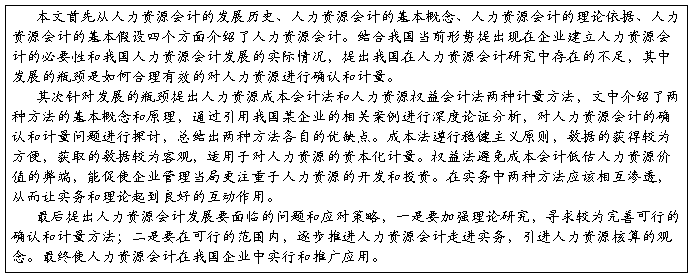 本文首先从人力资源会计的发展历史、人力资源会计的基本概念、人力资源会计的理论依据、人力
资源会计的基本假设四个方面介绍了人力资源会计。结合我国当前形势提出现在企业建立人力资源会
计的必要性和我国人力资源会计发展的实际情况，提出我国在人力资源会计研究中存在的不足，其中
发展的瓶颈是如何合理有效的对人力资源进行确认和计量。
其次针对发展的瓶颈提出人力资源成本会计法和人力资源权益会计法两种计量方法，文中介绍了两
种方法的基本概念和原理，通过引用我国某企业的相关案例进行深度论证分析，对人力资源会计的确
认和计量问题进行探讨，总结出两种方法各自的优缺点。成本法遵行稳健主义原则，数据的获得较为
方便，获取的数据较为客观，适用于对人力资源的资本化计量。权益法避免成本会计低估人力资源价
值的弊端，能促使企业管理当局更注重于人力资源的开发和投资。在实务中两种方法应该相互渗透，
从而让实务和理论起到良好的互动作用。
最后提出人力资源会计发展要面临的问题和应对策略，一是要加强理论研究，寻求较为完善可行的
确认和计量方法；二是要在可行的范围内，逐步推进人力资源会计走进实务，引进人力资源核算的观
念。最终使人力资源会计在我国企业中实行和推广应用。